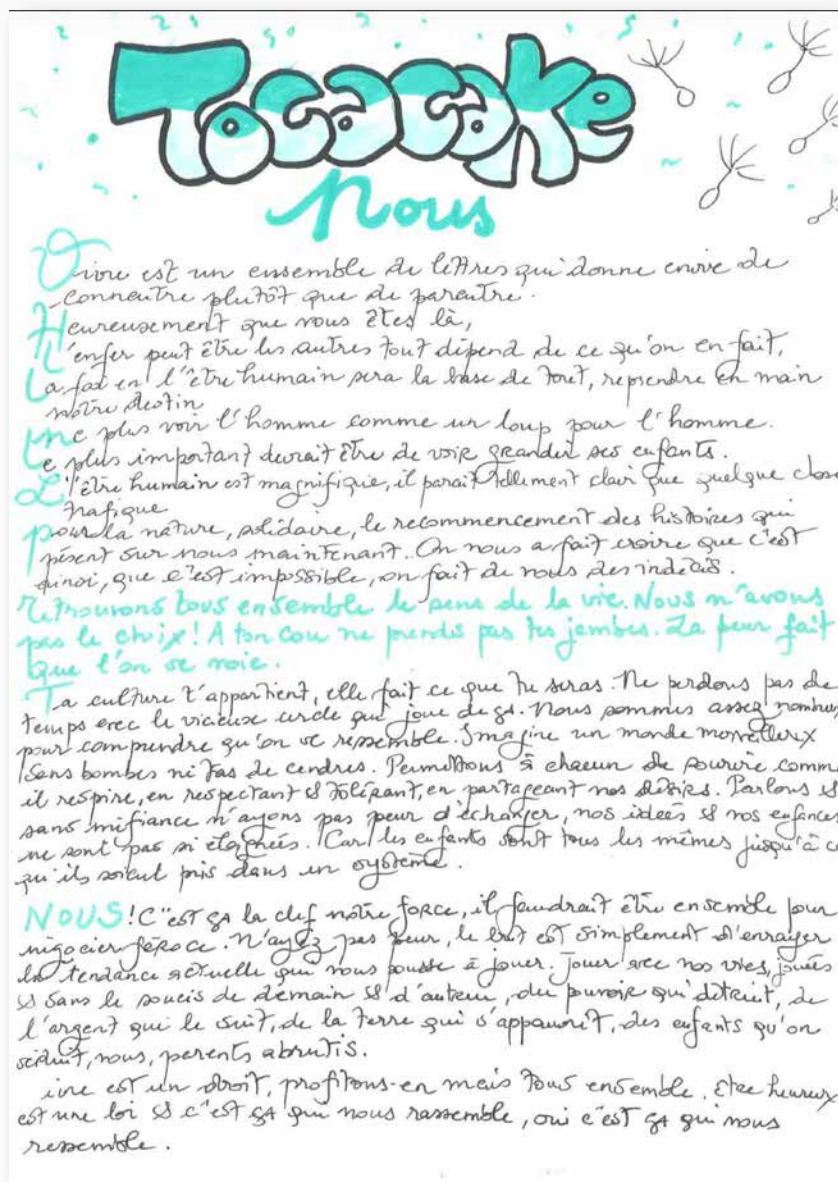 Tocacake
Nous
Vivre est un ensemble de lettres qui donne envie de
connaitre plutôt que de paraitre.
Heureusement que vous êtes là,
L'enfer peut être les autres tout dépend de ce qu'on en fait,
La foi en l'être humain sera la base de tout, reprendre en main
notre destin
Ne plus voir l'homme comme un loup pour l'homme.
Le plus important devrait être de voir grandir ses enfants.
L'être humain est magnifique, il parait tellement clair que quelque chose
trafique
pour la nature, solidaire, le recommencement des histoires qui
pèsent sur nous maintenant. On nous a fait croire que c'est
ainsi, que c'est impossible, on fait de nous des indécis.
Retrouvons tous ensemble le sens de la vie. Nous n'avons
pas le choix! A ton cou ne prends pas tes jambes. La peur fait
que l'on se noie.
Ta culture t'appartient, elle fait ce que tu seras. Ne perdons pas de
temps avec le vicieux cercle qui joue de ça. Nous sommes assez nombreux
pour comprendre qu'on se ressemble. Imagine un monde merveilleux
sans bombes ni tas de cendres. Permettons à chacun de sourire comme
il respire, en respectant et tolérant, en partageant nos désirs. Parlons et
sans méfiance n'ayons pas peur d'échanger, nos idées et nos enfances
ne sont pas si éloignées. Car les enfants sont tous les mêmes jusqu'à ce
qu'ils soient pris dans un système.
NOUS! C'est ça la clef notre force, il faudrait être ensemble pour
négocier féroce. N'ayez pas peur, le but est simplement d'enrayer
la tendance actuelle qui nous pousse à jouer. Jouer avec nos vies, jouées
et sans le soucis de demain et d'autrui, du pouvoir qui détruit, de
l'argent qui le suit, de la terre qui s'appauvrit, des enfants qu'on
séduit, nous, parents abrutis.
ivre est un droit, profitons-en mais tous ensemble. Etre heureux
est une loi et c'est ça qui nous rassemble, oui c'est ça qui nous
ressemble.